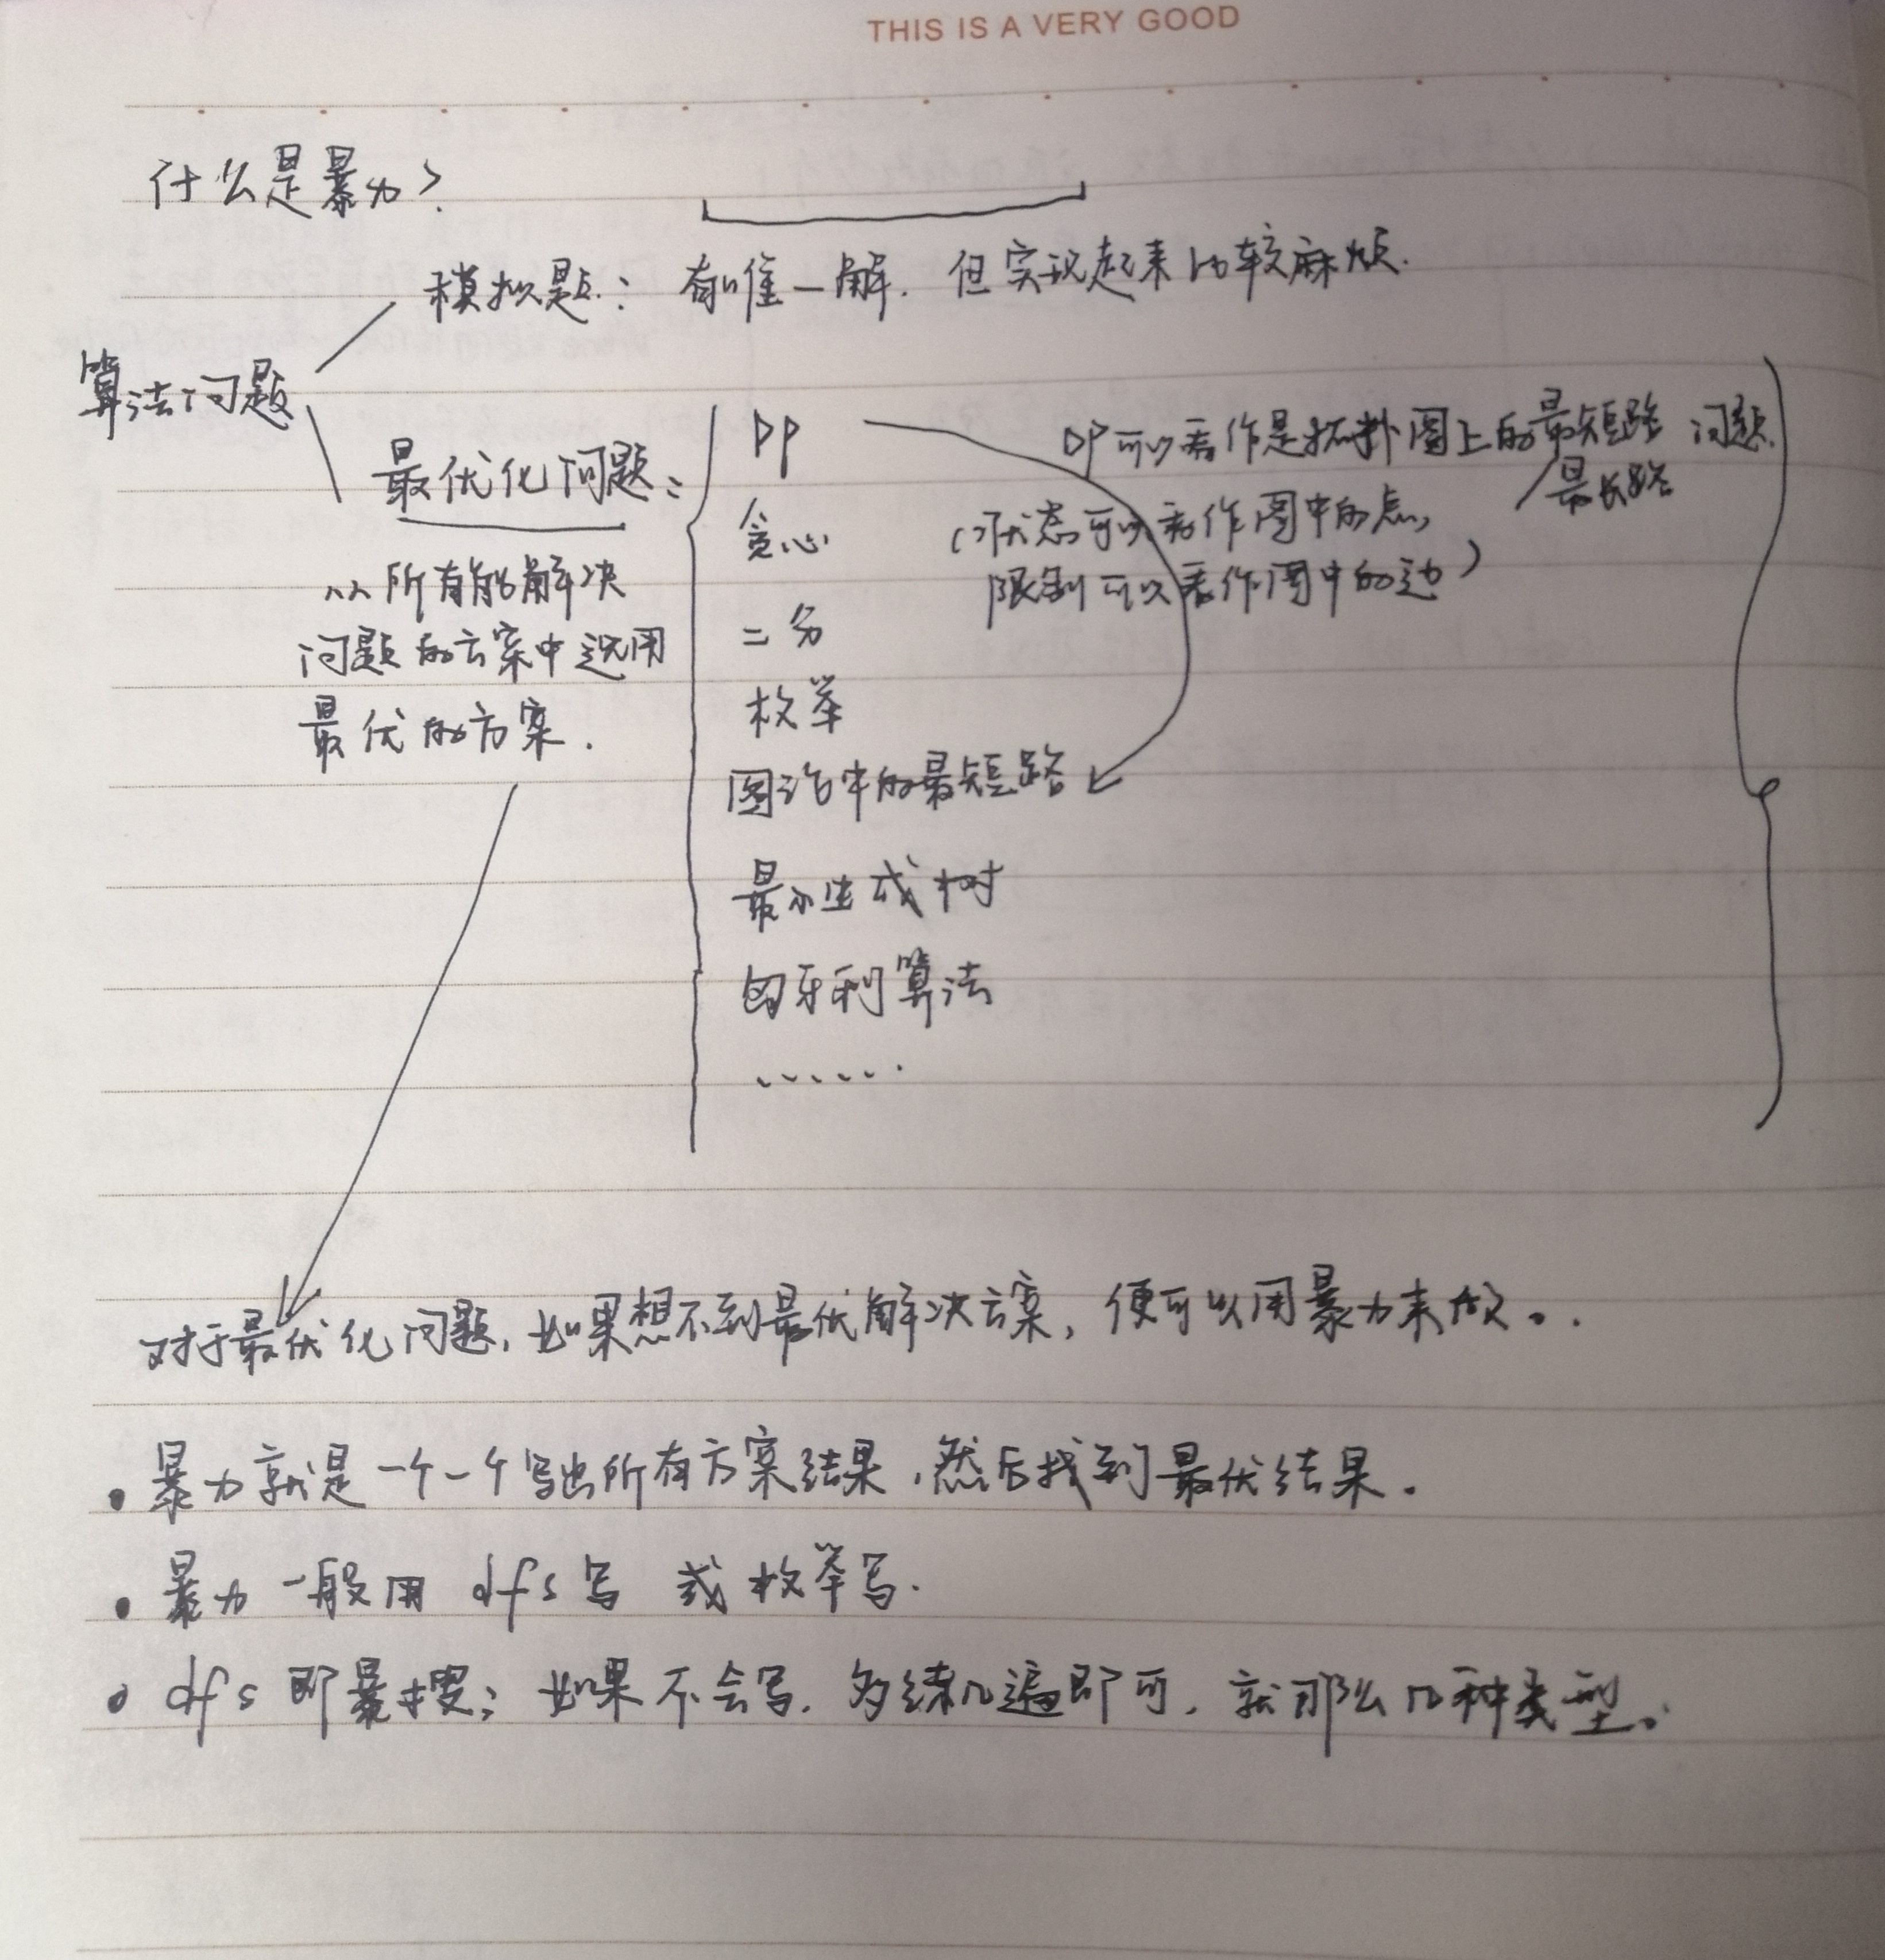 THIS IS A VERY GOOD
什么是暴力?
模拟题: 有唯一解. 但实现起来比较麻烦.
算法问题
最优化问题:
从所有能解决
问题的方案中选用
最优的方案.
DP
贪心
二分
枚举
图论中的最短路
最小生成树
匈牙利算法
......
DP可以看作是拓扑图上的最短路 问题.
/最长路
(状态可以看作图中的点,
限制可以看作图中的边)
对于最优化问题, 如果想不到最优解决方案, 便可以用暴力来做。.
• 暴力就是一个一个写出所有方案结果, 然后找到最优结果。
• 暴力一般用 dfs 写 或枚举写.
• dfs 即暴搜; 如果不会写, 多练几遍即可, 就那么几种类型。